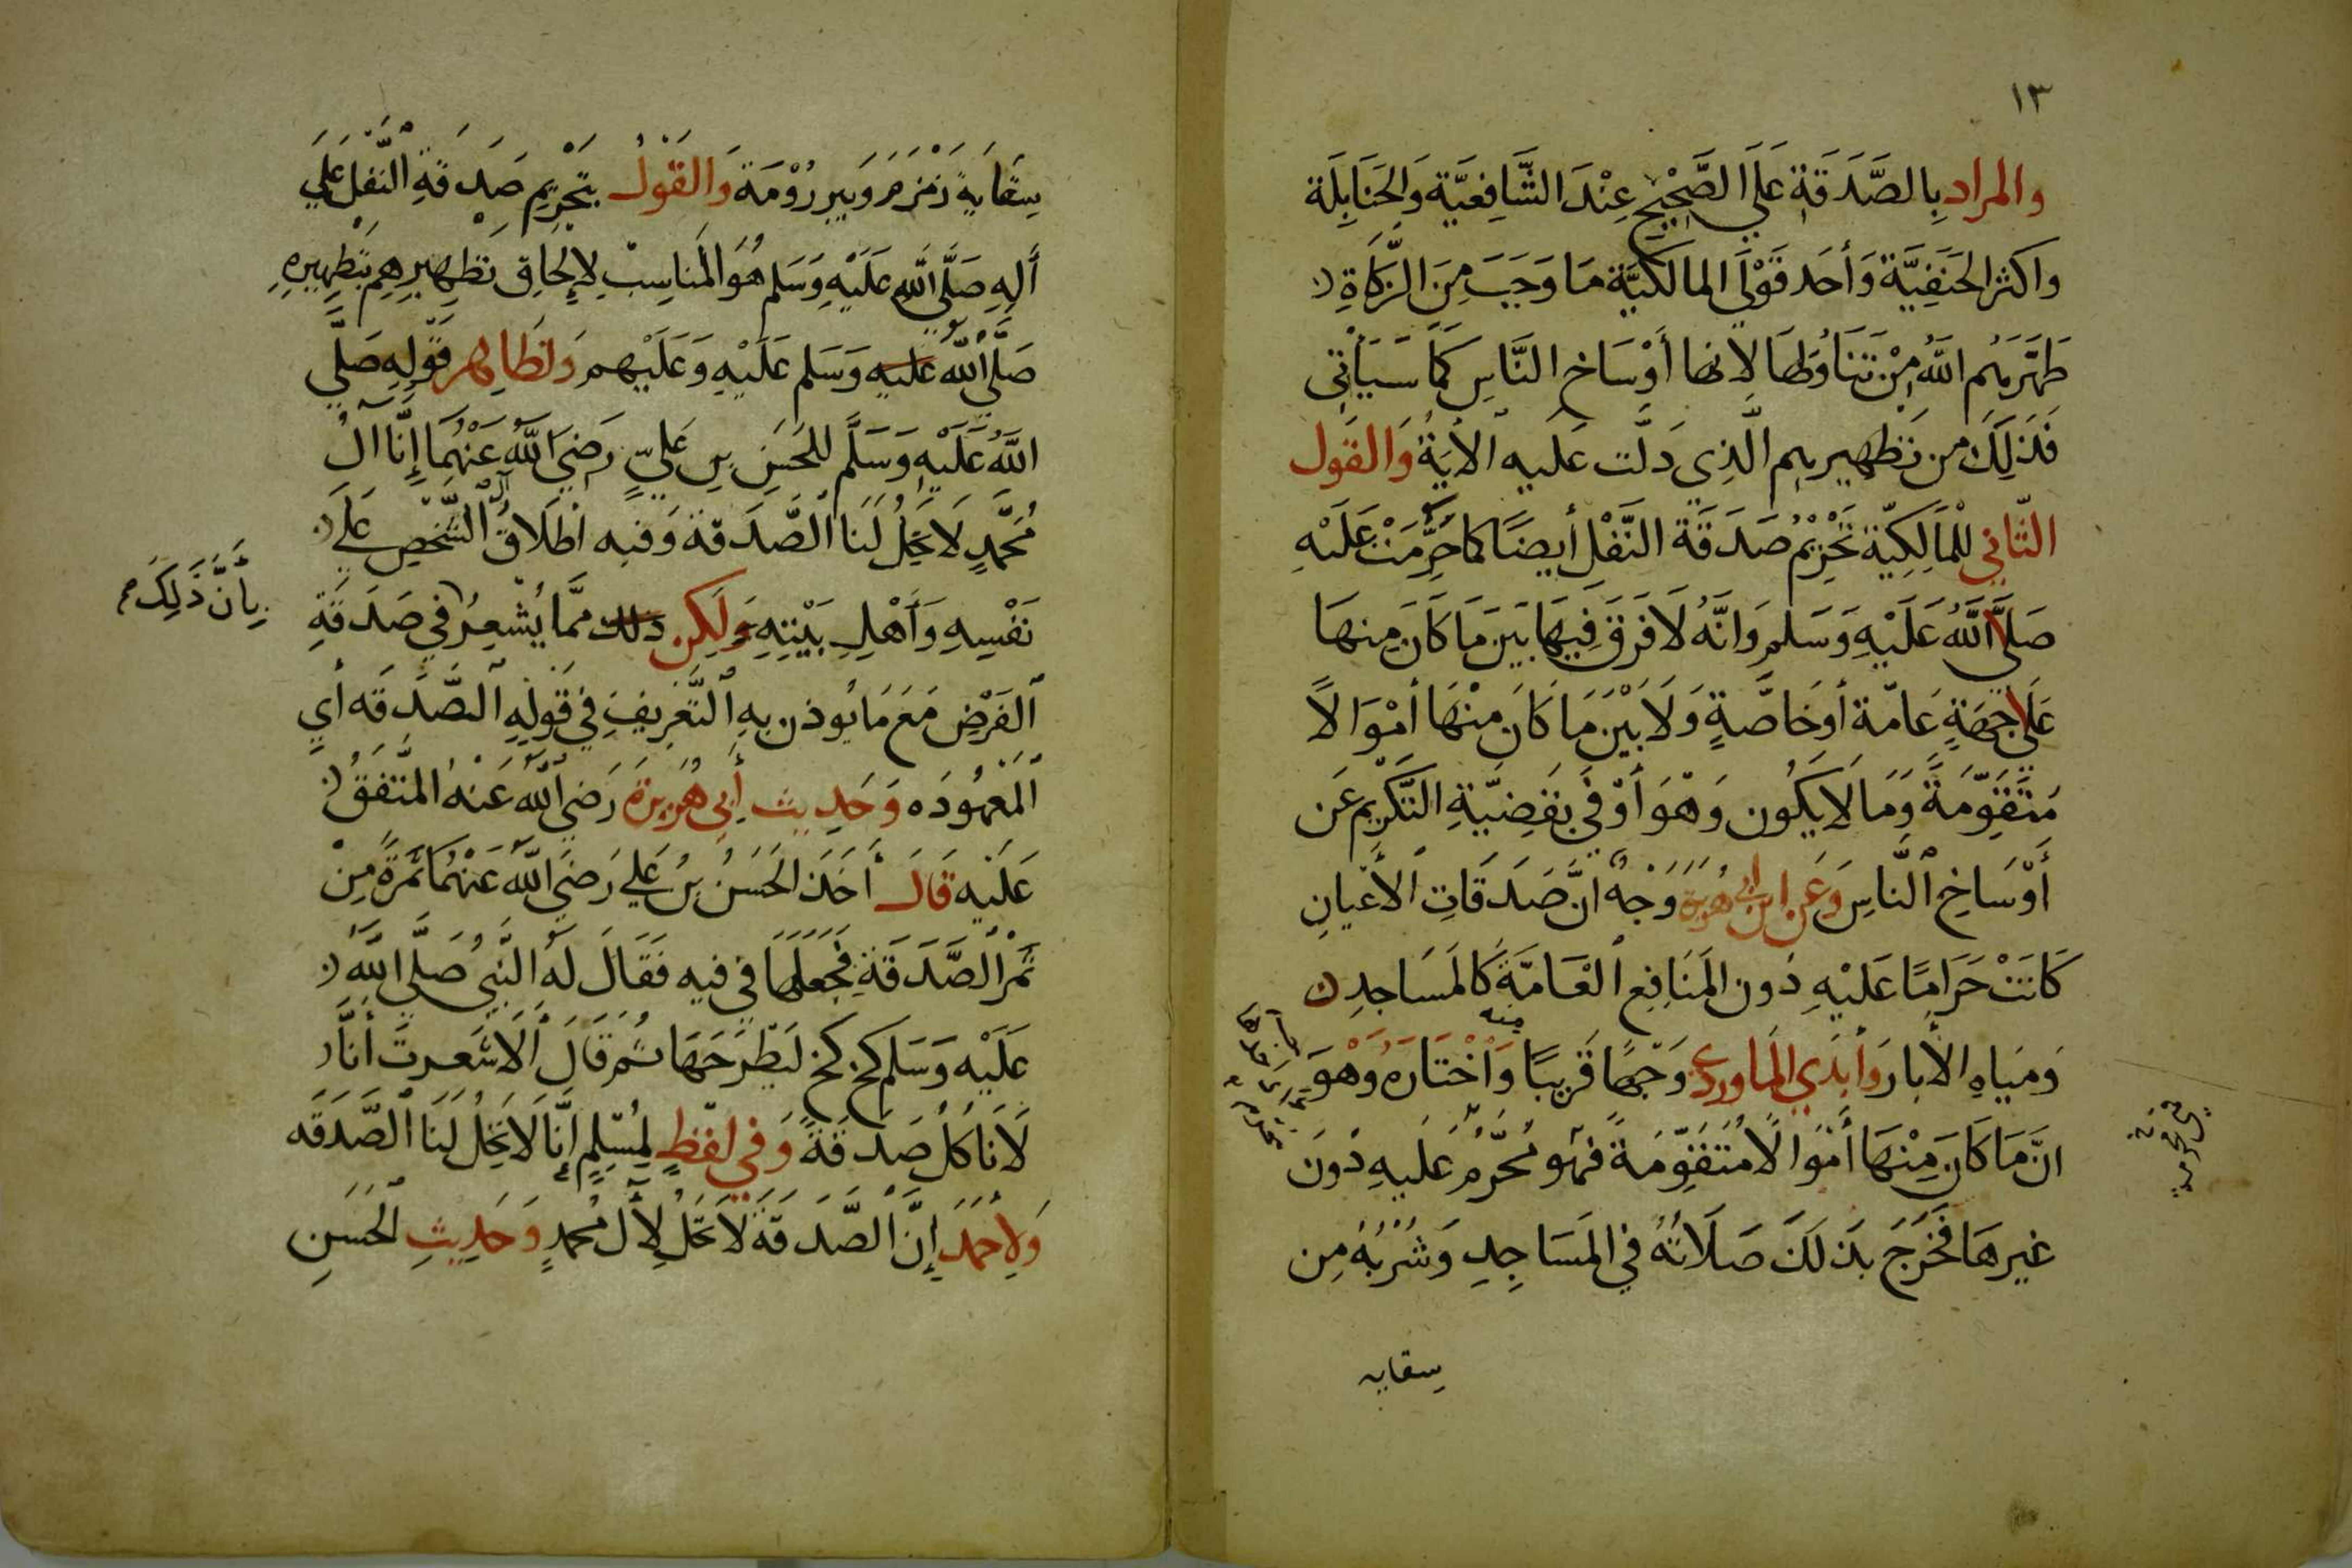 ١٣
والمراد بِالصَّدَقَةِ عَلَى الصَّحِيْحِ عِنْدَ الشَّافِعِيَّة وَالحَنَابِلَة
واكثر الحَنَفِيَّة وَأحَد قَوْلَي المالكيَّة مَا وَجَبَ مِنَ الزَّكَاةِ
طَهَّرَهُم اللَّهُ مِنْ تَنَاوُلِهَا لانها أَوْسَاخ النَّاسِ كَمَا سَيَأتِى
فَذلِكَ من تَطهِيرهِم الَّذِى دَلَّت عَليه الأيَةُ وَالقَول
الثَّانِي لْلمَالِكِيَّة تَحْرِيْمُ صَدَقَة النَّفْل أيضًا كما حَرُمَتْ عَلَيْهِ
صَلَّى اللَّهُ عَلَيْهِ وَسَلم وَانَّهُ لَا فَرَقَ فِيهَا بَيَن مَا كَانَ مِنهَا
عَلَى جِهَةٍ عَامّة أوخَاصَّةٍ وَلَا بَيْن مَا كَان مِنْهَا أمْوَالاً
مُتَقَوِّمَةً وَمَا لَا يَكُون وَهْوَ أوْفَى بقَضِيَّةِ التَّكْرِيم عَن
أَوْسَاخِ النَّاسِ وَعَن ابن ابى هريرة وَجْهٌ انَّ صَدَقَاتِ الأعْيانِ
كَانَتْ حَرَامًا عَلَيْهِ دُون المَنَافِعِ العَامَّةَ كَالمَسَاجِدِ
وَمِيَاهِ الأبَار وَأبْدَي المَاوردي منه وَجْهًا قَرِيبًا وَاْخْتَارَهُ وَهْوَ
انَّ مَا كَانَ مِنْهَا أمْوَالًا مُتَقَوِّمَةً فهُو مُحَرَّمٌ عَلَيهِ دُونَ
غيرهَا فَخَرَجَ بذَلكَ صَلَاتُهُ في المَسَاجِدِ وَشُرْبُهُ مِن
سقايه
سِقَايَةِ زَمْزَم وَبِير رُوْمَة وَالقَوْلُ بتَحْرِيْمِ صَدَقَةِ النَّفل عَلَى
ألِهِ صَلَّى اللَّهِ عَلَيْهِ وَسَلم هُوَ المُنَاسِبُ لِإلحَاقِ تَطهِيرِهِم بتَطهِيرِهِ
صَلَّى اللَّهُ عَليهِ وَسَلم عَلَيْهِ وَعَلَيْهِم وَلظَاهِر قَولِهِ صَلَّى
اللَّهُ عَلَيْهِ وَسَلَّم للحَسَنِ بن عَليٍّ رَضِيَ اللَّهُ عَنْهُمَا إنَّا الُ
مُحَمَّدٍ لَا تَحِلُّ لَنَا الصَّدَقة وَفيه اطْلَاقُ آل الشَّخْصِ عَلى
نَفْسِهِ وَأَهْلِ بَيْتِهِ وَلَكِن ذلك ممَّا يُشْعِرُ في صَدَقَةِ
بِأنَّ ذَلِكَ
الفَرْضِ مَعَ مَا يُوذن بهِ التَّعْرِيفِ فِي قَولِهِ الصَّدَقَه أي
المَعْهُودَه وَحَدِيث أَبِي هُرَيرَة رَضِيَ اللَّهُ عَنهُ المُتَّفَقُ
عَلَيْه قَالَ أخَذَ الحَسَنُ بنُ عَلي رَضِيَ اللَّهُ عَنْهُمَا تَمْرَةً مِنْ
تَمْر الصَّدَقَةِ فَجَعَلَهَا في فيه فَقَالَ لَهُ النَّبيُ صَلَّى اللَّهُ
عَلَيْه وَسَلم كخ كخ لَيَطْرَحَهَا ثُم قَالَ ألَا شَعرتَ أنَّا
لَا نَاكُلُ صَدَقَةً وَفي لَفظٍ لِمُسْلِمٍ إنَّا لَا تَحِلُ لَنَا الصَّدَقَه
وَلِأحْمَدَ إنَّ الصَّدَقَة لَا تَحَلُّ لِأل مُحمدٍ وَحَدِيثِ الحَسَنِ